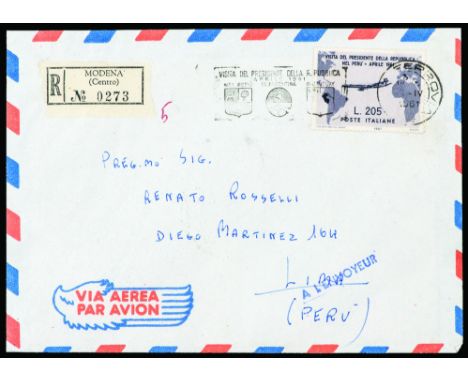 MODENA
(Centro)
R
№ 0273
VISITA DEL PRESIDENTE DELLA REPUBBLICA
APRILE 1961
VISITA DEL PRESIDENTE DELLA REPUBBLICA
NEL PERU - APRILE 1961
L. 205
POSTE ITALIANE
1961
5
PREG.MO SIG.
RENATO ROSSELLI
DIEGO MARTINEZ 164
LIMA
(PERÙ)
A L'ENVOYEUR
VIA AEREA
PAR AVION